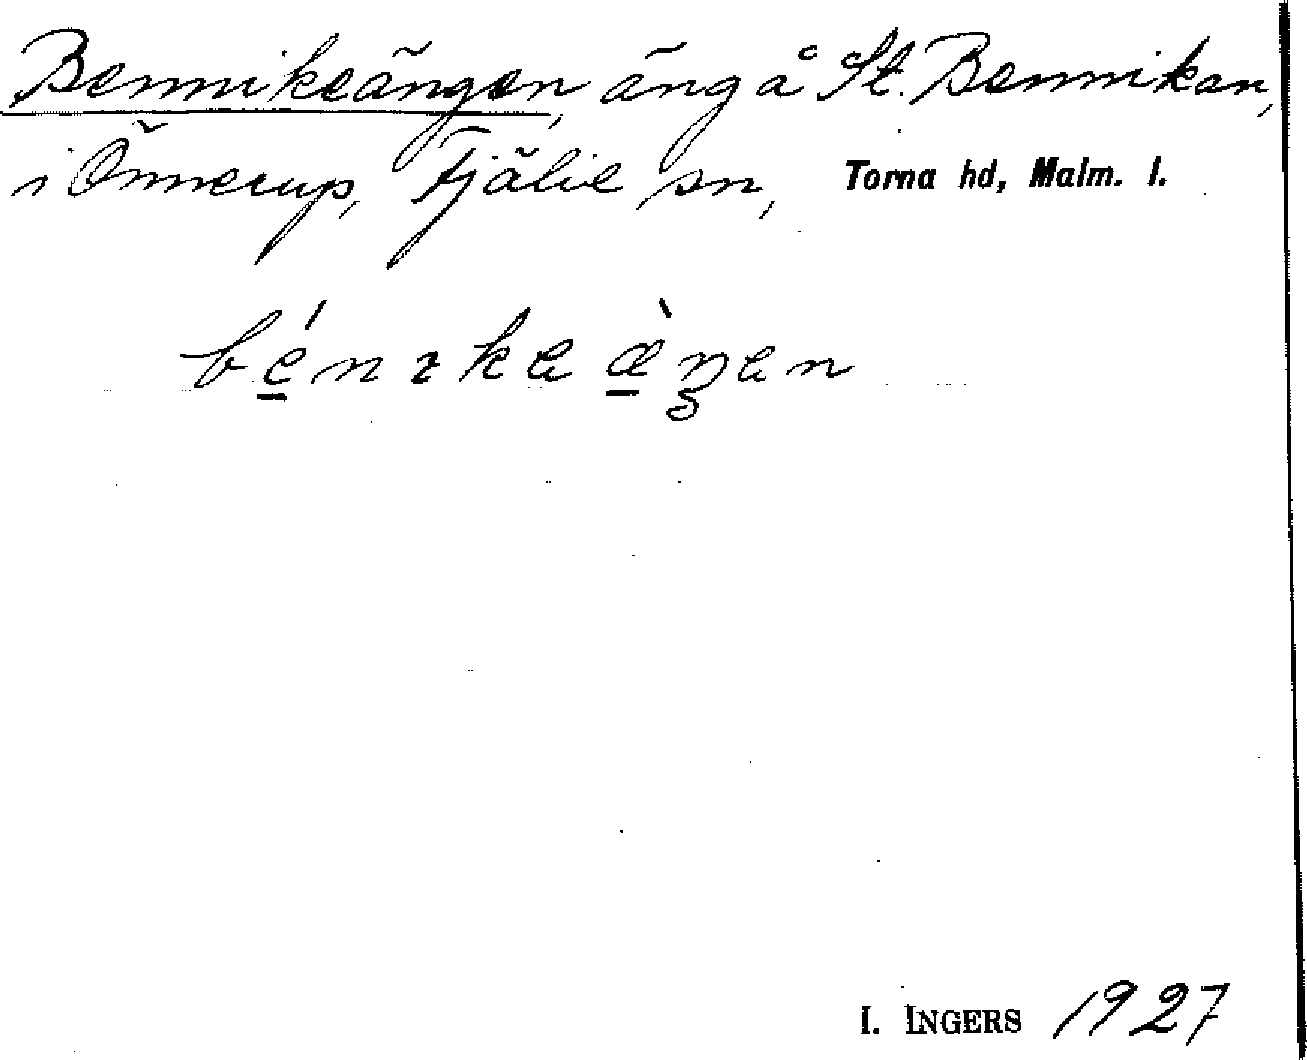 Bennikeängen, äng å St. Bennikan,
i Önnerup, Fjälie sn, Torna hd, Malm. l.
bénɿkeæ̀ŋen
I. INGERS 1927